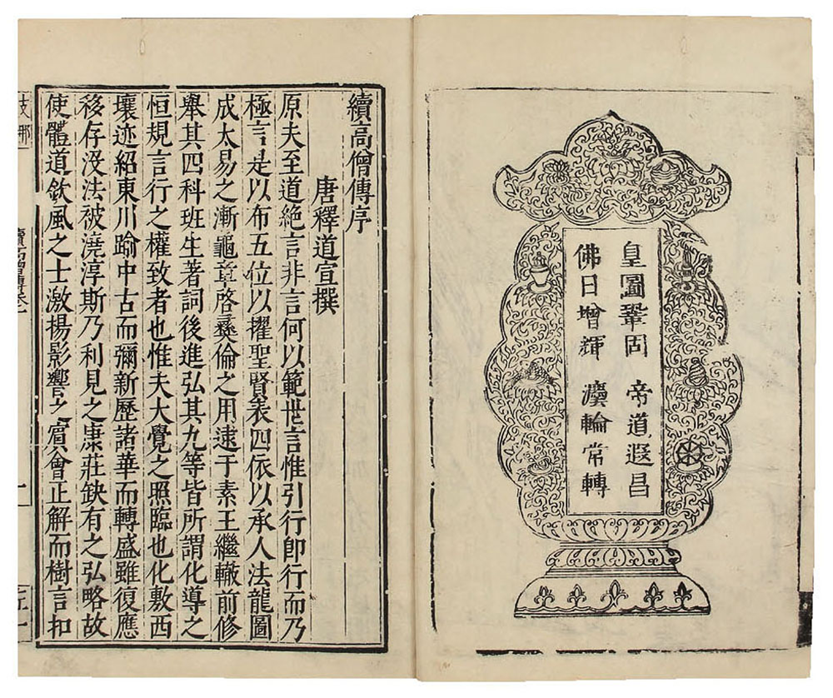 皇圖鞏固 帝道遐昌
佛日增輝 灋輪常轉
續高僧傳序
唐釋道宣撰
原夫至道絕言非言何以範世言惟引行即行而乃
極言是以布五位以擢聖賢表四依以承人法龍圖
成太易之漸龜章啓彞倫之用逮于素王繼轍前修
舉其四科班生著詞後進弘其九等皆所謂化導之
恒規言行之權致者也惟夫大覺之照臨也化敷西
壤迹紹東川踰中古而彌新歷諸華而轉盛雖復應
移存没法被澆淳斯乃利見之康莊缺有之弘略故
使體道欽風之士激揚影響之賓會正解而樹言扣